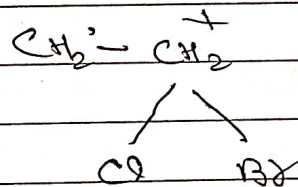 CH₂' - CH₂⁺
Cl Br